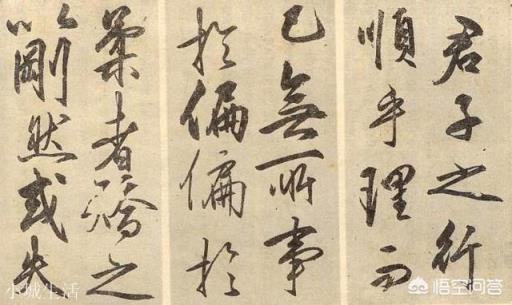 君子之行
順乎理而
已無所事
於偏偏於
柔者矯之
以剛然或失
小城生活
悟空问答